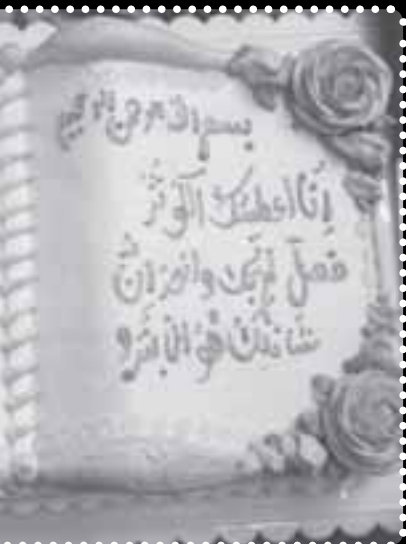 بسم الله الرحمن الرحيم
إنا أعطينك الكوثر
فصل لربك وانحر إن
شانئك هو الأبتر